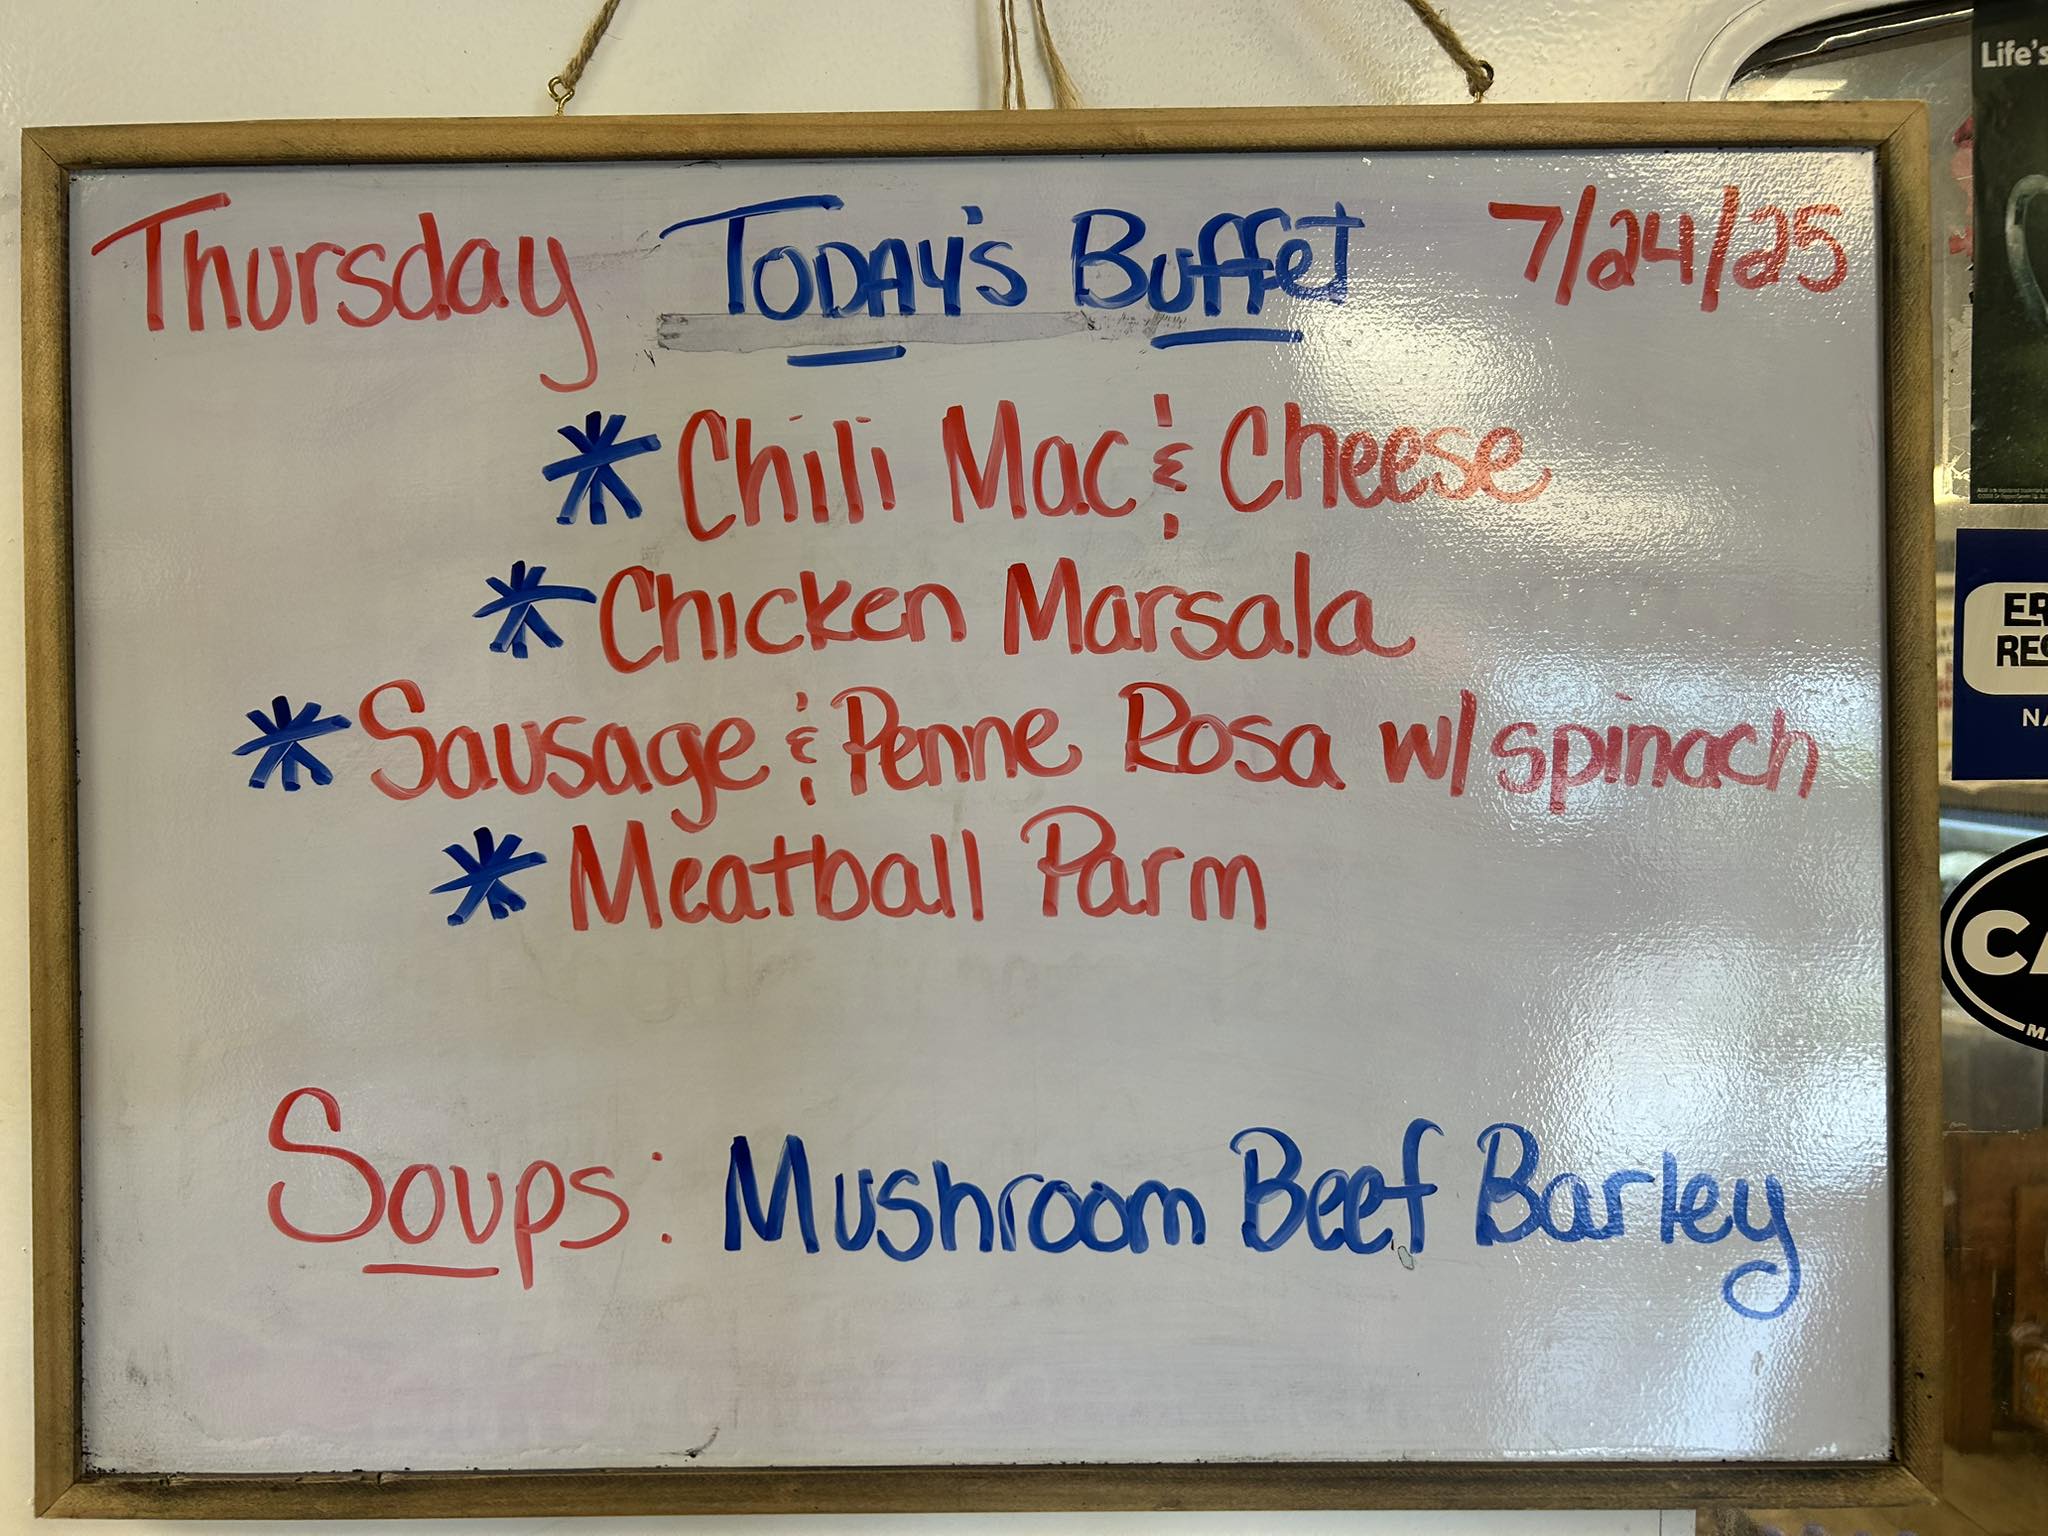 Thursday Today's Buffet 7/24/25
* Chili Mac & Cheese
* Chicken Marsala
* Sausage & Penne Rosa w/ spinach
* Meatball Parm
Soups: Mushroom Beef Barley
Life's
ER
RE
NA
CA